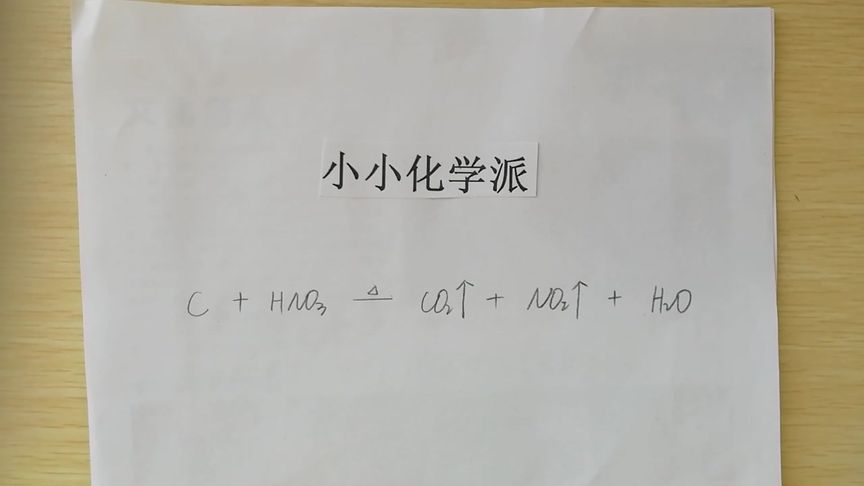 小小化学派
C + HNO₃ ≜ CO₂↑ + NO₂↑ + H₂O